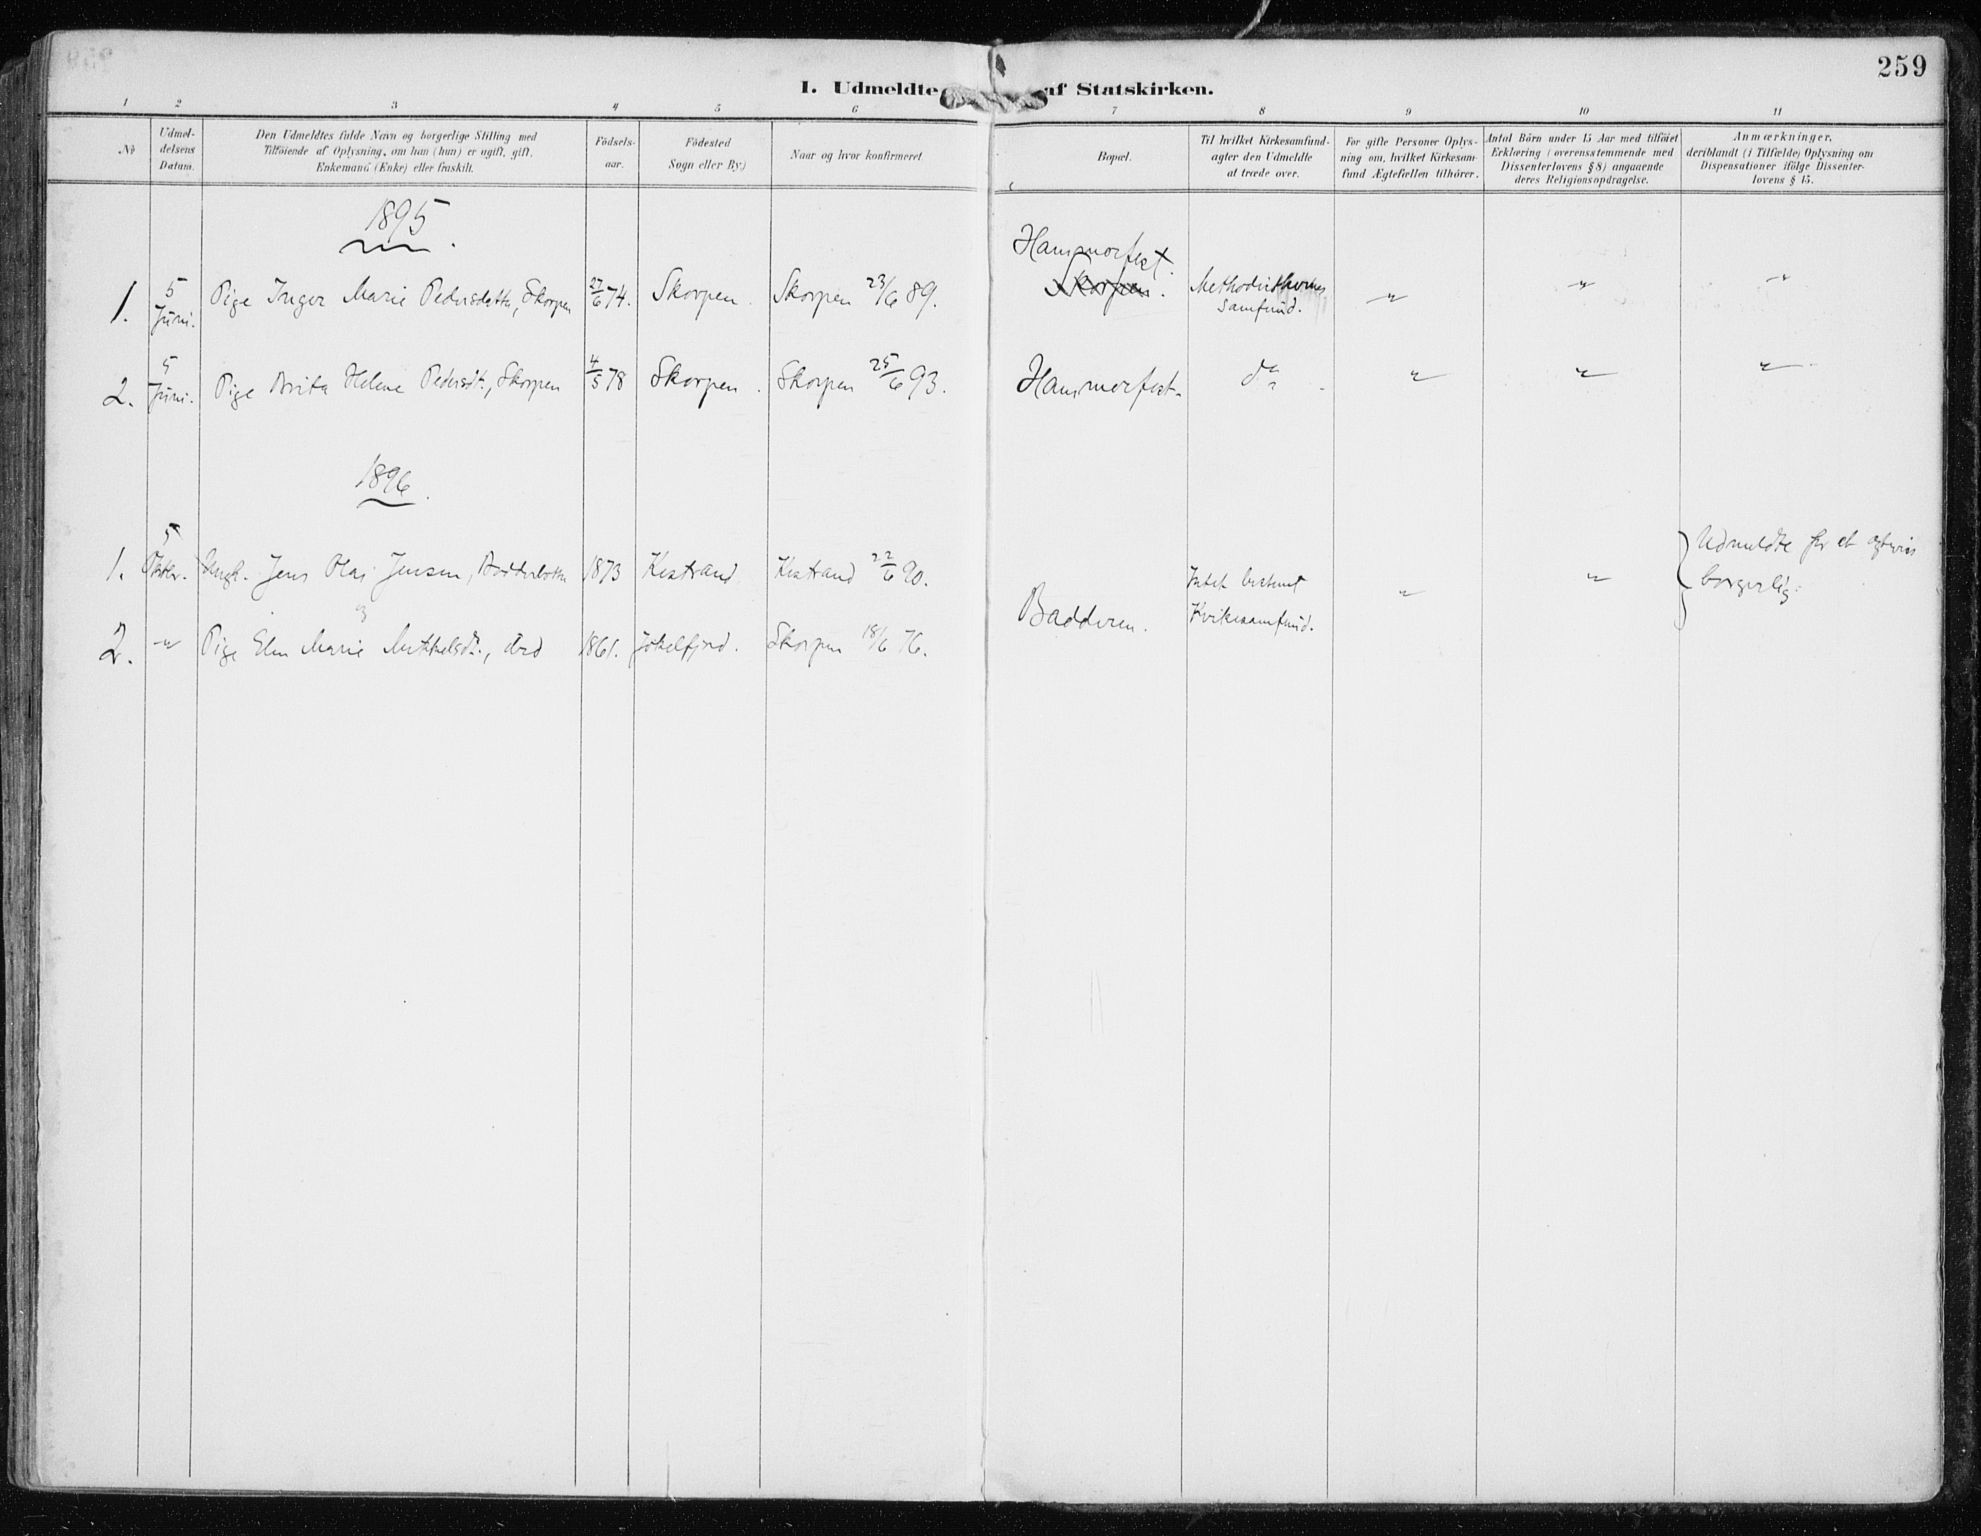 259
I. Udmeldte af Statskirken.
1 2 3 4 5 6 7 8 9 10 11
№
Udmel-
delsens
Datum.
Den Udmeldtes fulde Navn og borgerlige Stilling med
Tilföiende af Oplysning, om han (hun) er ugift, gift,
Enkemand (Enke) eller fraskilt.
Födsels-
aar.
Födested
Sogn eller By)
Naar og hvor konfirmeret
Bopæl.
Til hvilket Kirkesamfund-
agter den Udmeldte
at træde over.
For gifte Personer Oplys-
ning om, hvilket Kirkesam-
fund Ægtefællen tilhörer.
Antal Börn under 15 Aar med tilföiet
Erklæring (overensstemmende med
Dissenterlovens § 8) angaaende
deres Religionsopdragelse.
Anmærkninger,
deriblandt (i Tilfælde) Oplysning om
Dispensationer ifölge Dissenter-
lovens § 15.
1895
Hammerfest.
1. 5 Juni. Pige Inger Marie Pedersdatter, Skorpen 27/6 74. Skorpen. Skorpen 23/6 89. Skorpen. Methodisternes " " "
Samfund.
2. 5 Juni. Pige Brita Helene Pedersdt., Skorpen 4/5 78 Skorpen. Skorpen 25/6 93. Hammerfest. do " " "
1896.
1. 5 Oktbr. Ungk. Jens Olaj Jensen, 1873 Kistrand Kistrand 22/6 90.
Badderen. Intet bestemt " " Udmeldte for et
Kirkesamfund. borgerlig.
og
2. " Pige Elen Marie Mikkelsdt., 1861. Jökelfjord. Skorpen 18/6 76.